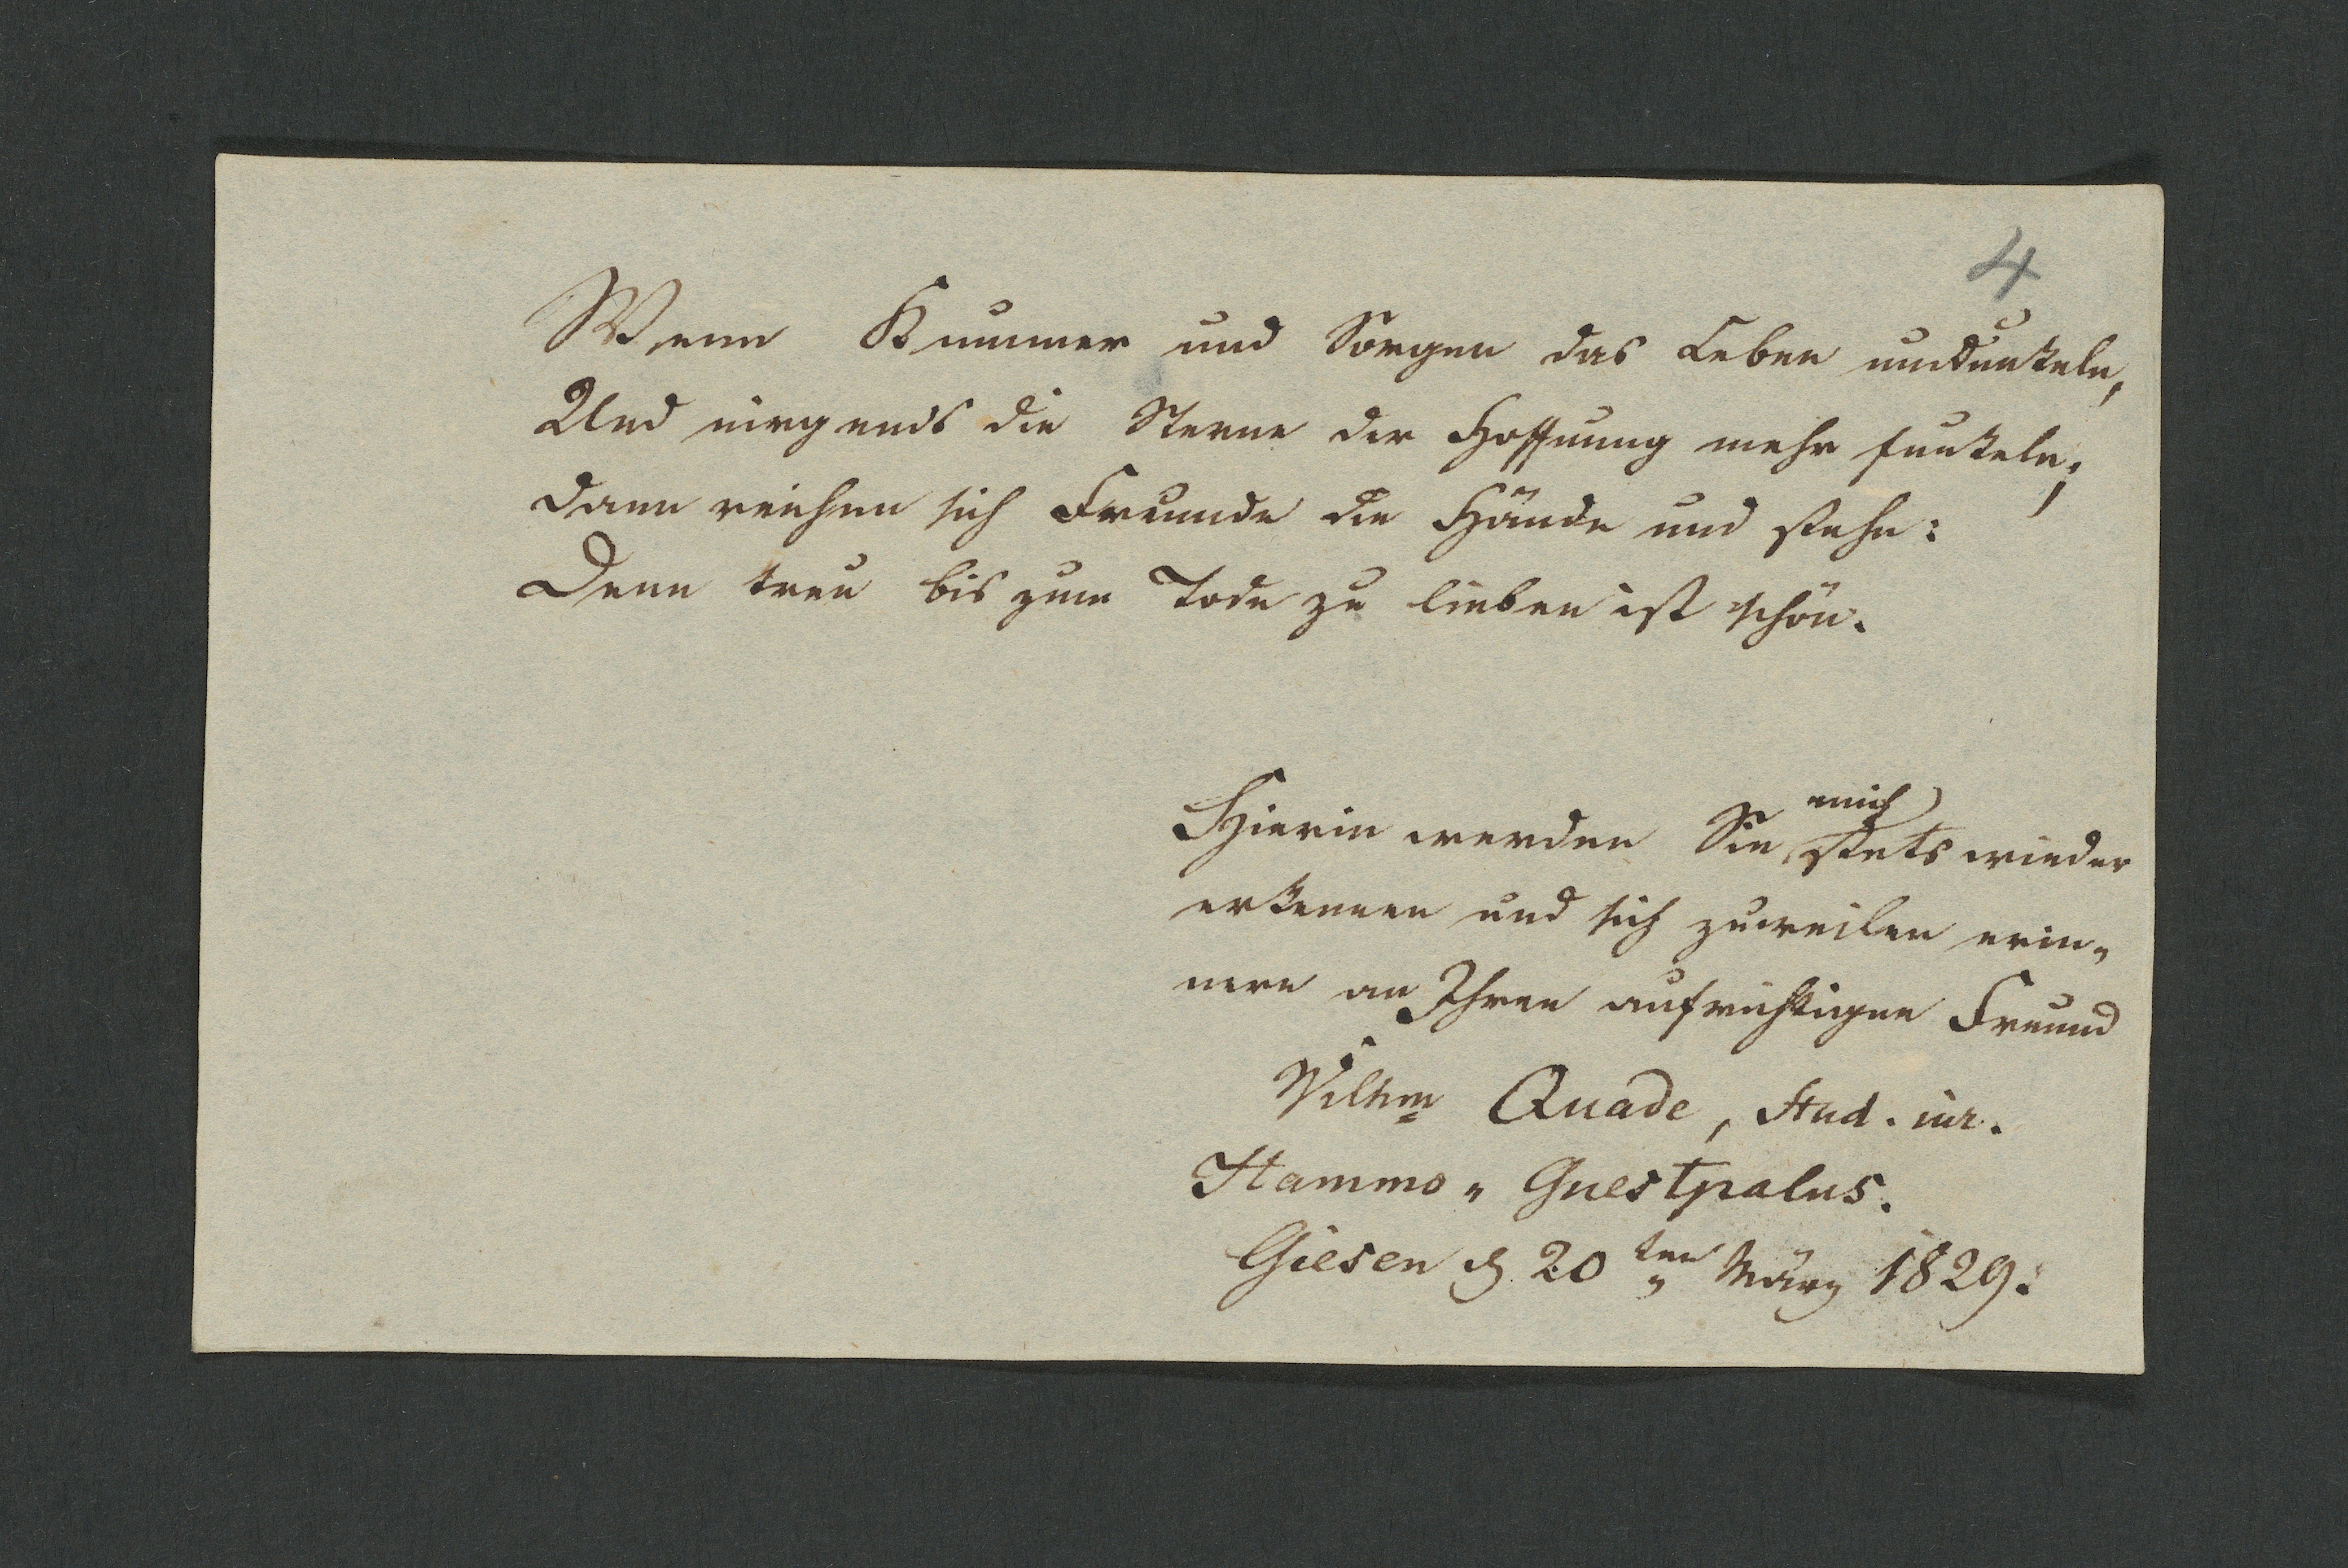 4
Wenn Kummer und Sorgen das Leben umdunkeln,
Und nirgends die Sterne der Hoffnung mehr funkeln;
dann reichen sich Freunde die Hände und stehn:
Denn treu bis zum Tode zu lieben ist schön.
mich
Hierin werden Sie stets wieder
erkennen und sich zuweilen erin„
nern an Ihren aufrichtigen Freund
Wilhm Quade, Stud. iur.
Hammo„Guestpalus.
Giesen d 20ten März 1829.